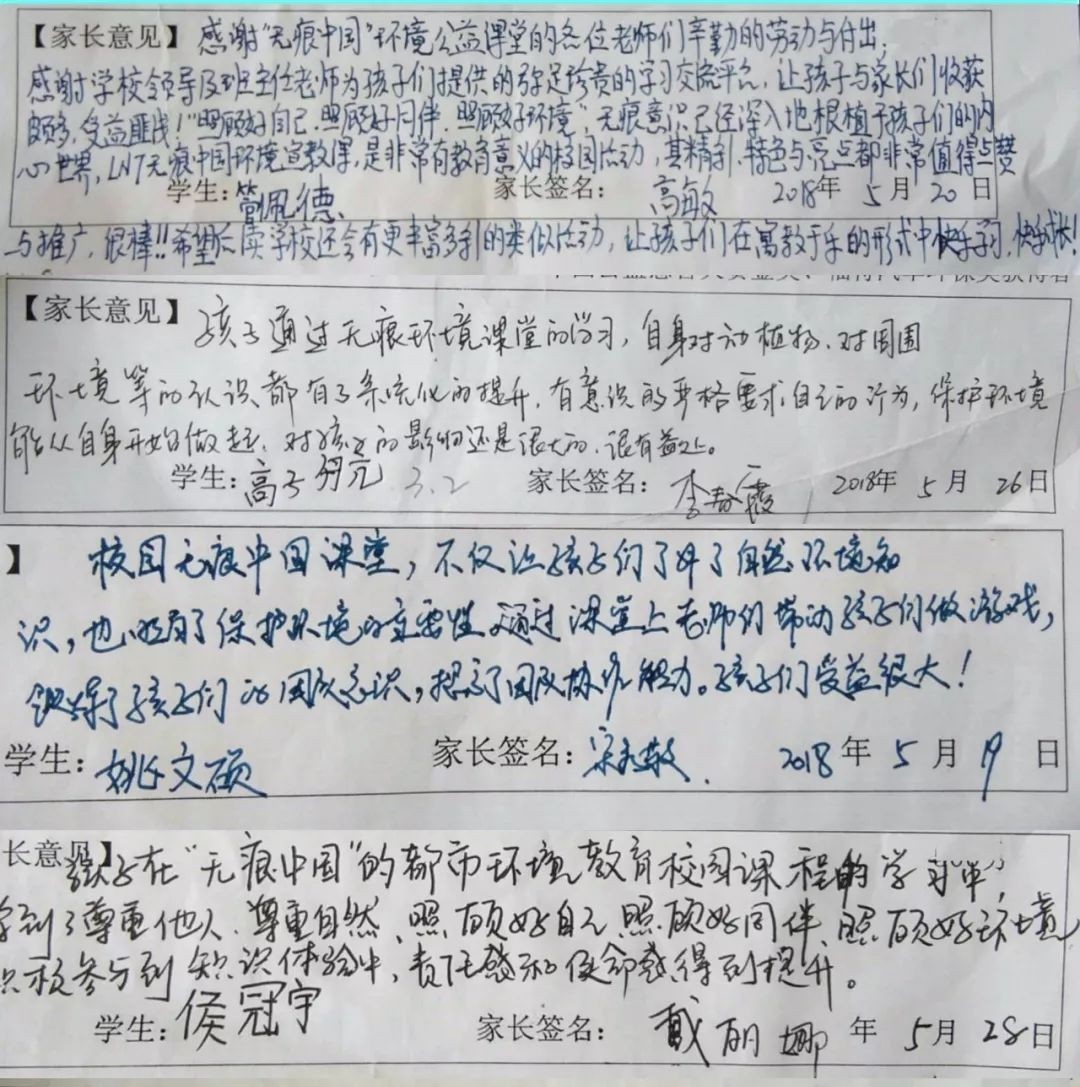 【家长意见】感谢“无痕中国”环境公益课堂的各位老师们辛勤的劳动与付出,
感谢学校领导及班主任老师为孩子们提供的弥足珍贵的学习交流平台,让孩子与家长们收获
颇多,受益匪浅!“照顾好自己.照顾好同伴.照顾好环境”,无痕意识已经深入地根植于孩子们的内
心世界,LNT无痕中国环境宣教课,是非常有教育意义的校园活动,其精彩.特色与亮点都非常值得点赞
学生: 德 家长签名: 高敏 2018年 5月 20日
与推广,很棒!!希望 学校还会有更丰富多彩的类似活动,让孩子们在寓教于乐的形式中快乐学习,快乐成长!
【家长意见】孩子通过无痕环境课堂的学习,自身对动植物、对周围
环境等的认识都有了系统化的提升,有意识的严格要求自己的行为,保护环境
能从自身开始做起,对孩子的影响还是很大的,很有益处。
学生:高子 元 3.2 家长签名: 李春霞 2018年 5月 26日
】 校园无痕中国课堂,不仅让孩子们了解了自然环境知
识,也明白了保护环境的重要性,通过课堂上老师们带动孩子们做游戏,
锻炼了孩子们的团队意识,提高了团队协作能力。孩子们受益很大!
学生:姚文硕 家长签名:宋 敬. 2018年 5月 19日
长意见】孩子在“无痕中国”的都市环境教育校园课程的学习中,
学到了尊重他人、尊重自然、照顾好自己、照顾好同伴、照顾好环境
积极参与到知识体验中,责任感和使命感得到提升。
学生:侯冠宇 家长签名: 戴丽娜 年 5月 28日